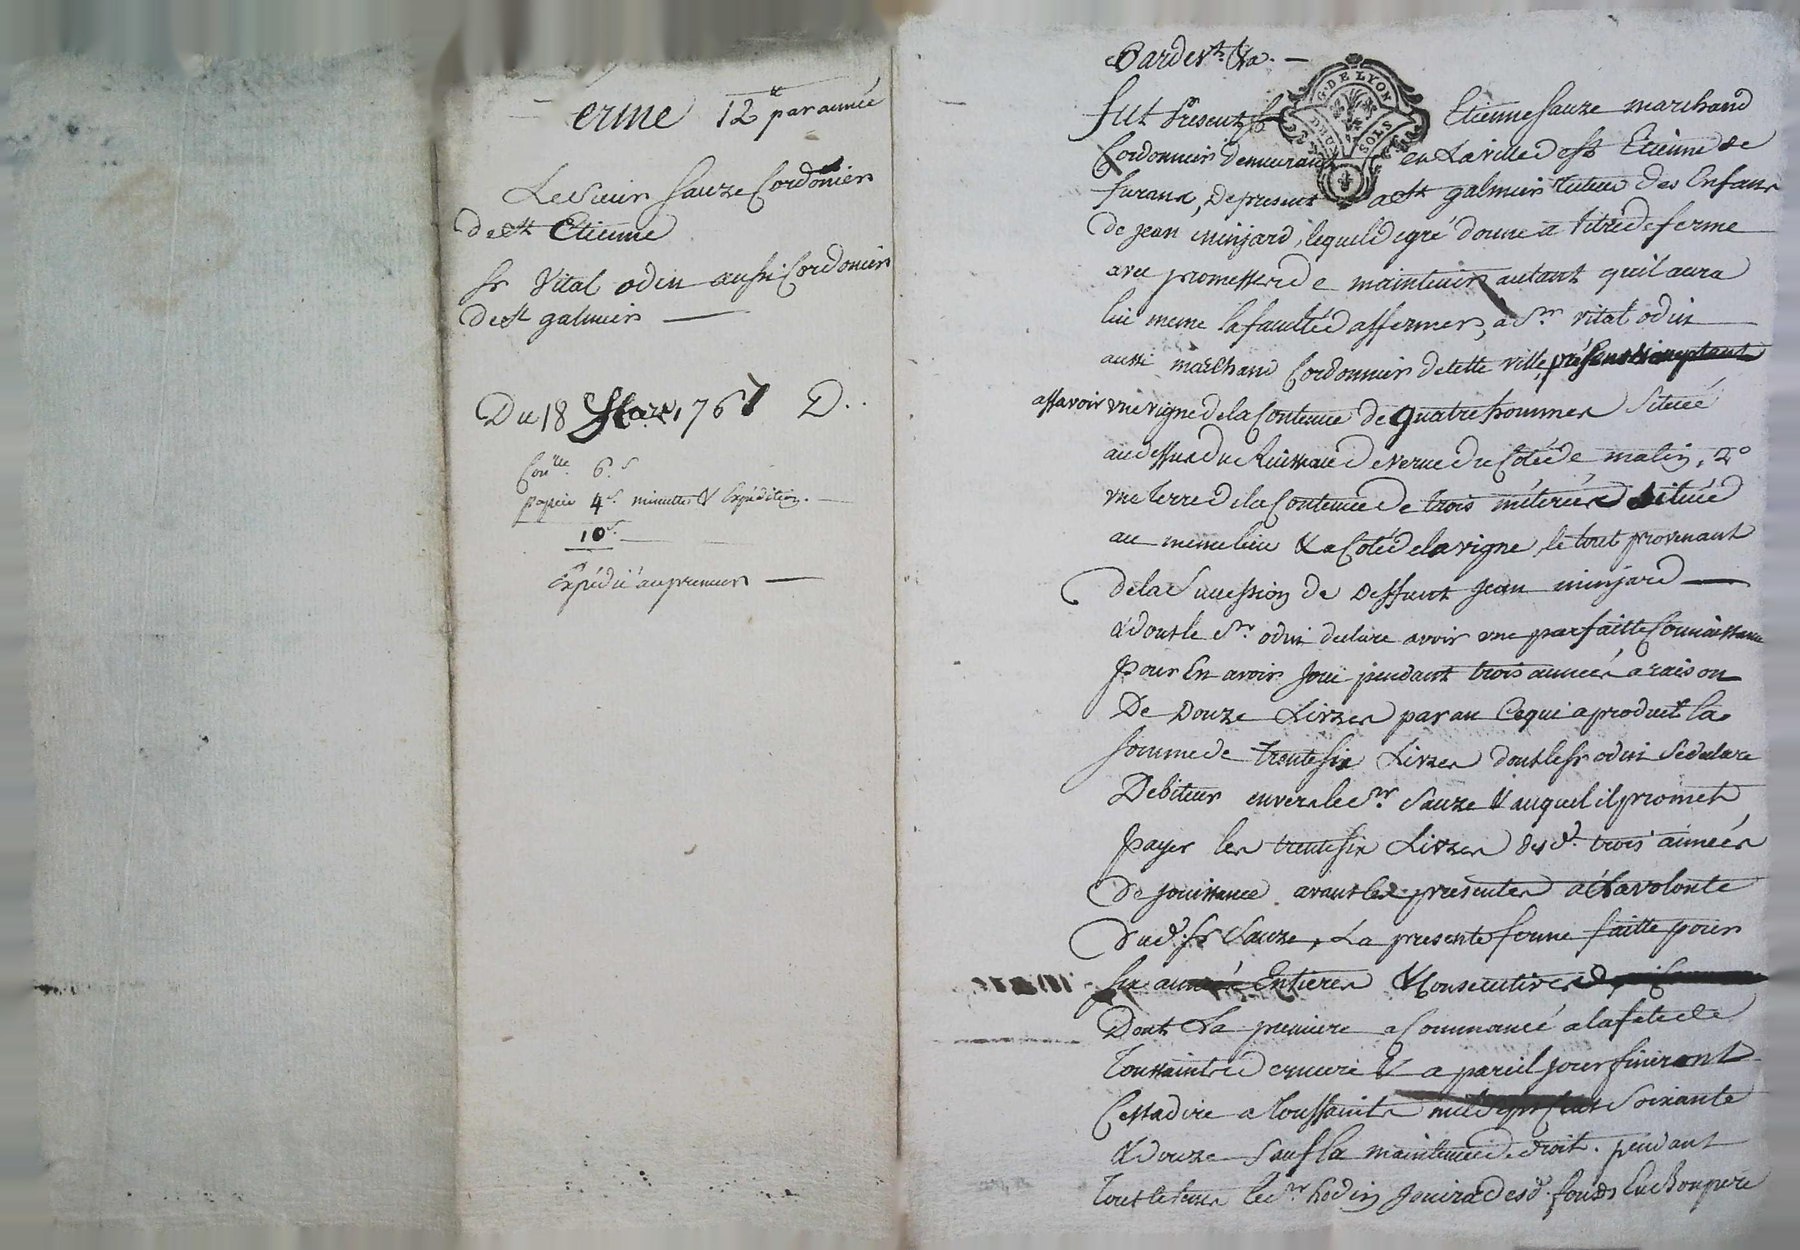 erme 12tt par année
Le Sieur Sauze Cordonier
de st Etienne
Sr Vital odin aussi Cordonier
de st galmier
Du 18 Mars 1767 D..
Conlle 6s
papier 4s minutte & Expédition.
10s
Expédié au premier
Pardevt &a.
G. DE LYON
DEUX SOLS
fut Present Sr Etienne Sauze marchand
Cordonnier demeurant en La ville de st Etienne de
furans, de present a st galmier tuteur des Enfans
de jean minjard, lequel de gré donne a titre de ferme
avec promesse de maintenir autant quil aura
lui meme la faculté daffermer, a Sr vital odin
aussi marchand Cordonnier de cette ville, présent & acceptant
assavoir une vigne de la Contenue de quatre hommes Située
au dessus du Ruisseau de verue du Coté de matin, 2°
une terre de la Contenue de trois méterées Située
au meme lieu & a Coté de la vigne, le tout provenant
de la Succession de deffunt jean minjard
& dont le Sr odin declare avoir une parfaitte Connaissance
pour En avoir joui pendant trois années a raison
De Douze Livres par an Ce qui a produit la
somme de trente six Livres dont le Sr odin Se declare
Debiteur envers le Sr Sauze & auquel il promet
payer les trente six Livres desd. trois années
de jouissance avant les presentes a la volonté
dud. Sr Sauze, La presente ferme faitte pour
six années Entieres & Consecutives
Dont La premiere a Commancé a la fete de
Toussaints derniere & a pareil jour finiront
Cestadire a Toussaints mil sept Cent Soixante
& douze Sauf la maintenue de droit. pendant
tout le tems le Sr hodin jouira desd. fonds En bon pere